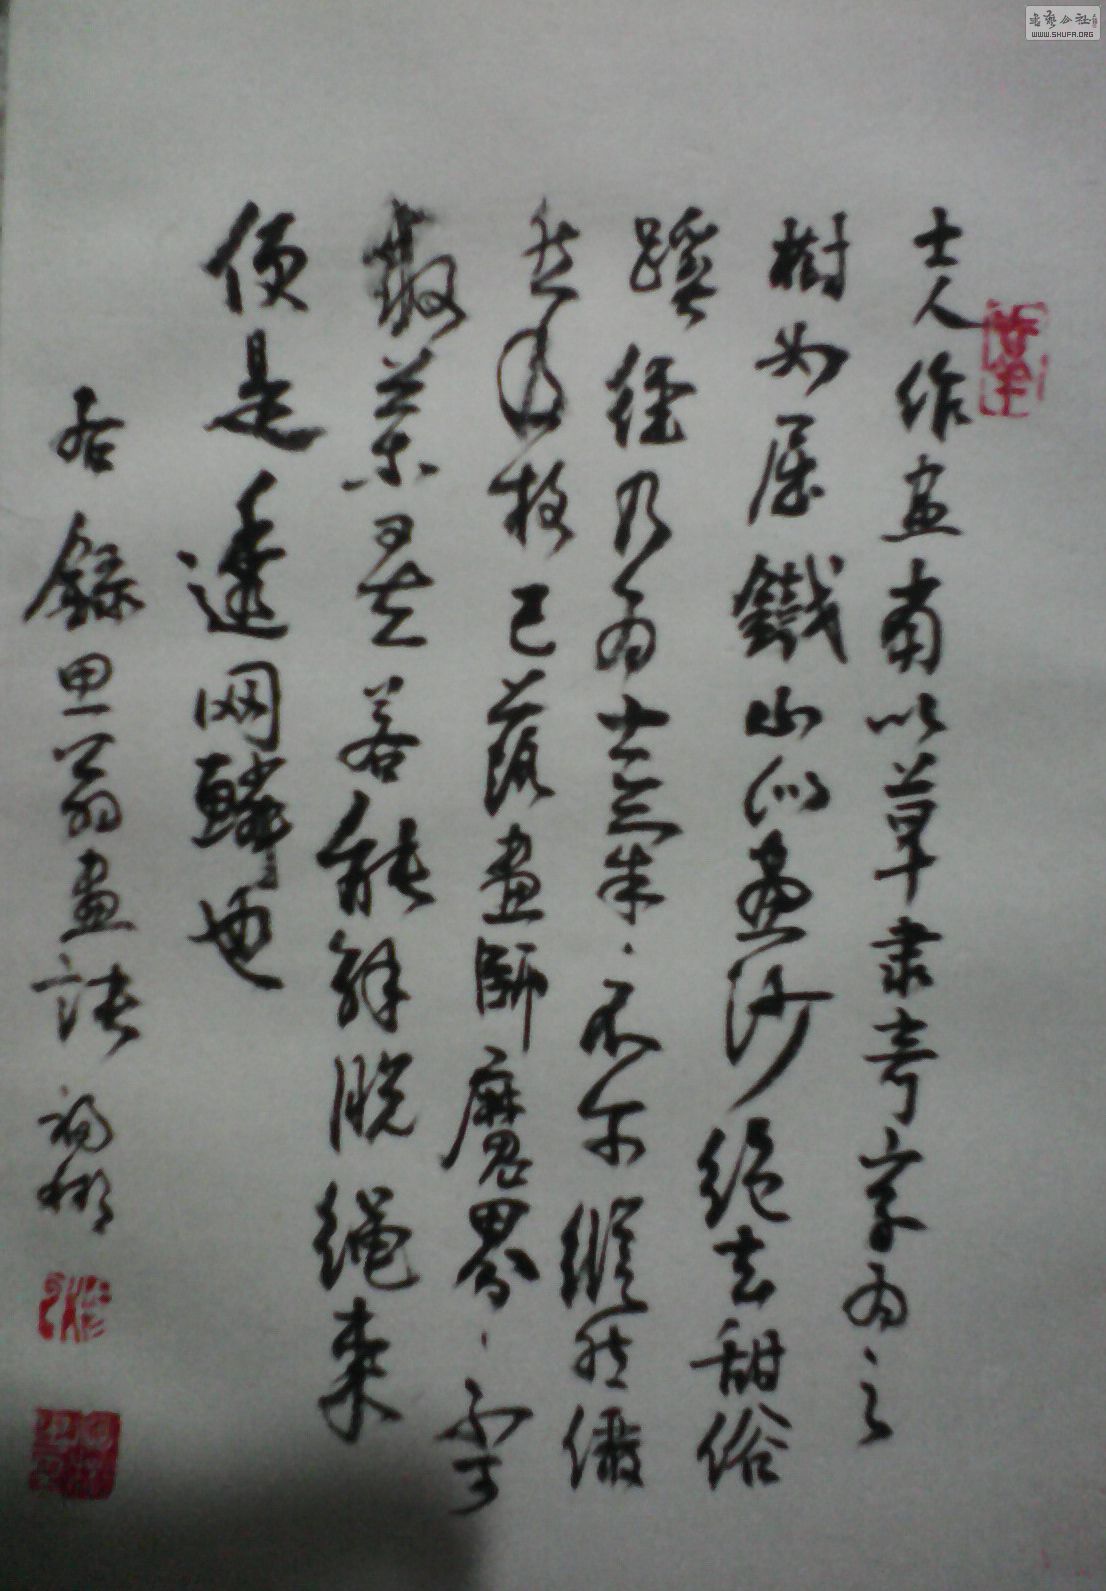 士人作畫當以草隶奇字为之
樹如屈鐵山似畫沙絕去甜俗
蹊徑乃为士氣、不尔縱然儼
然及格已落畫師魔界、不可
救藥矣若能解脫绳束
便是透网鱗也
右錄思翁畫訣
书艺公社
WWW.SHUFA.ORG